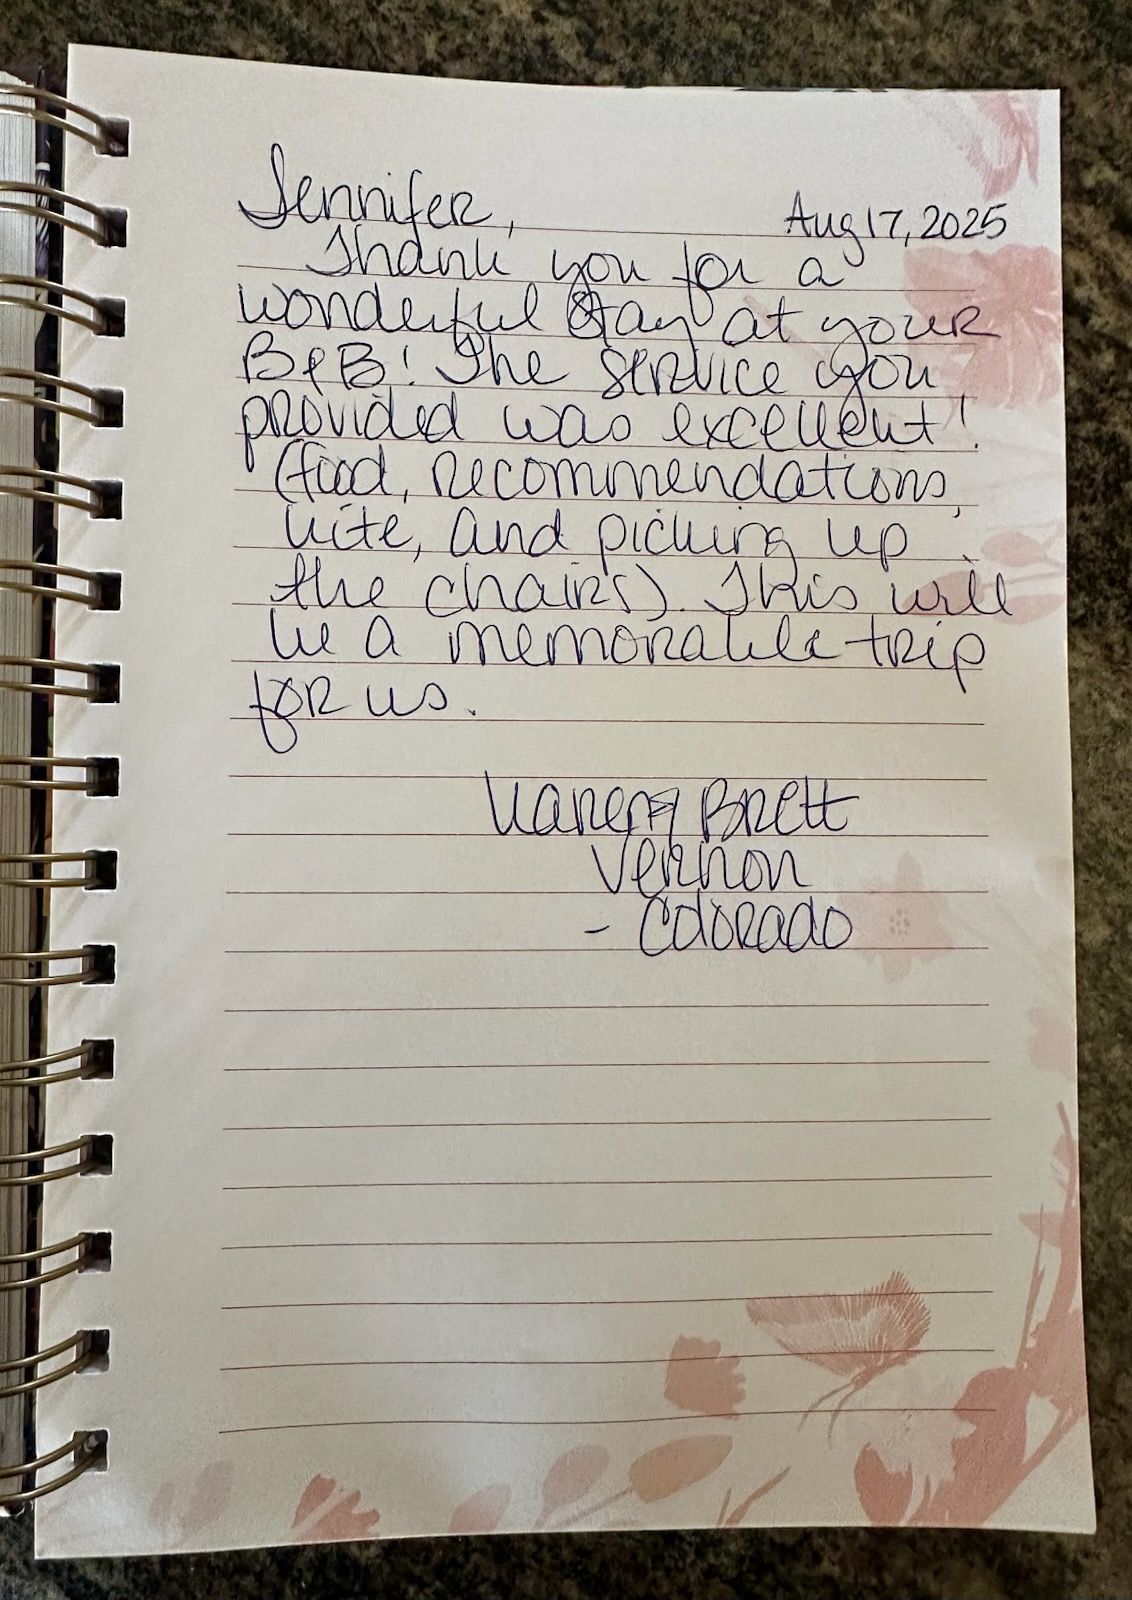 Jennifer,
Aug 17, 2025
Thank you for a
wonderful stay at your
B&B! The service you
provided was excellent!
(food, recommendations,
kite, and picking up
the chairs). This will
be a memorable trip
for us.
Karen & Brett
Vernon
- Colorado